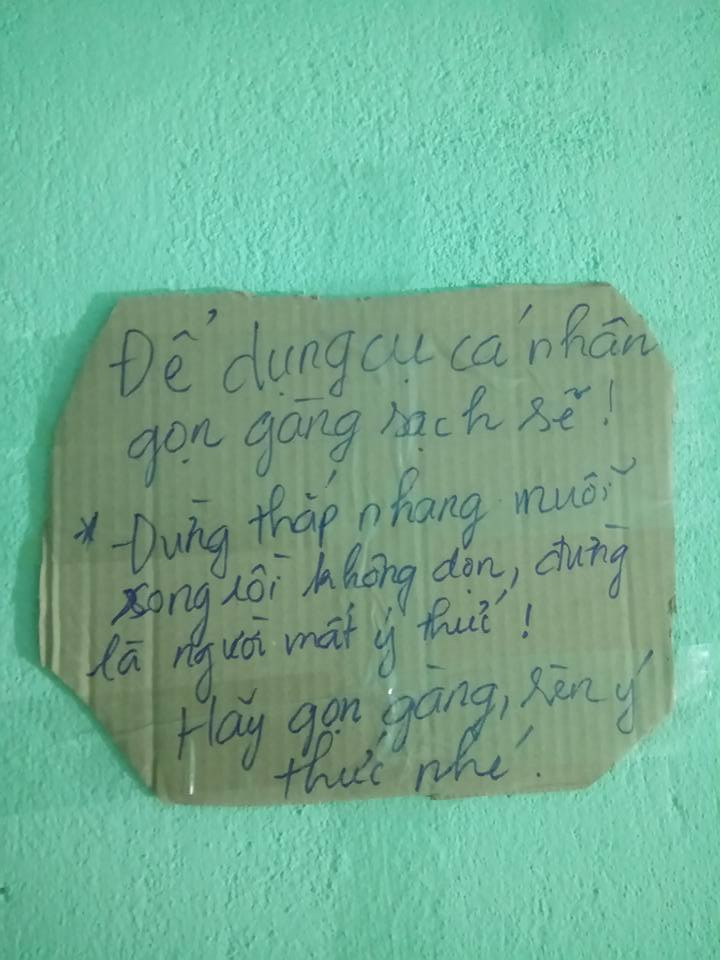 Để dụng cụ cá nhân
gọn gàng sạch sẽ!
* Đừng thắp nhang muỗi
song rồi không dọn, đừng
là người mất ý thức!
Hãy gọn gàng, rèn ý
thức nhé.